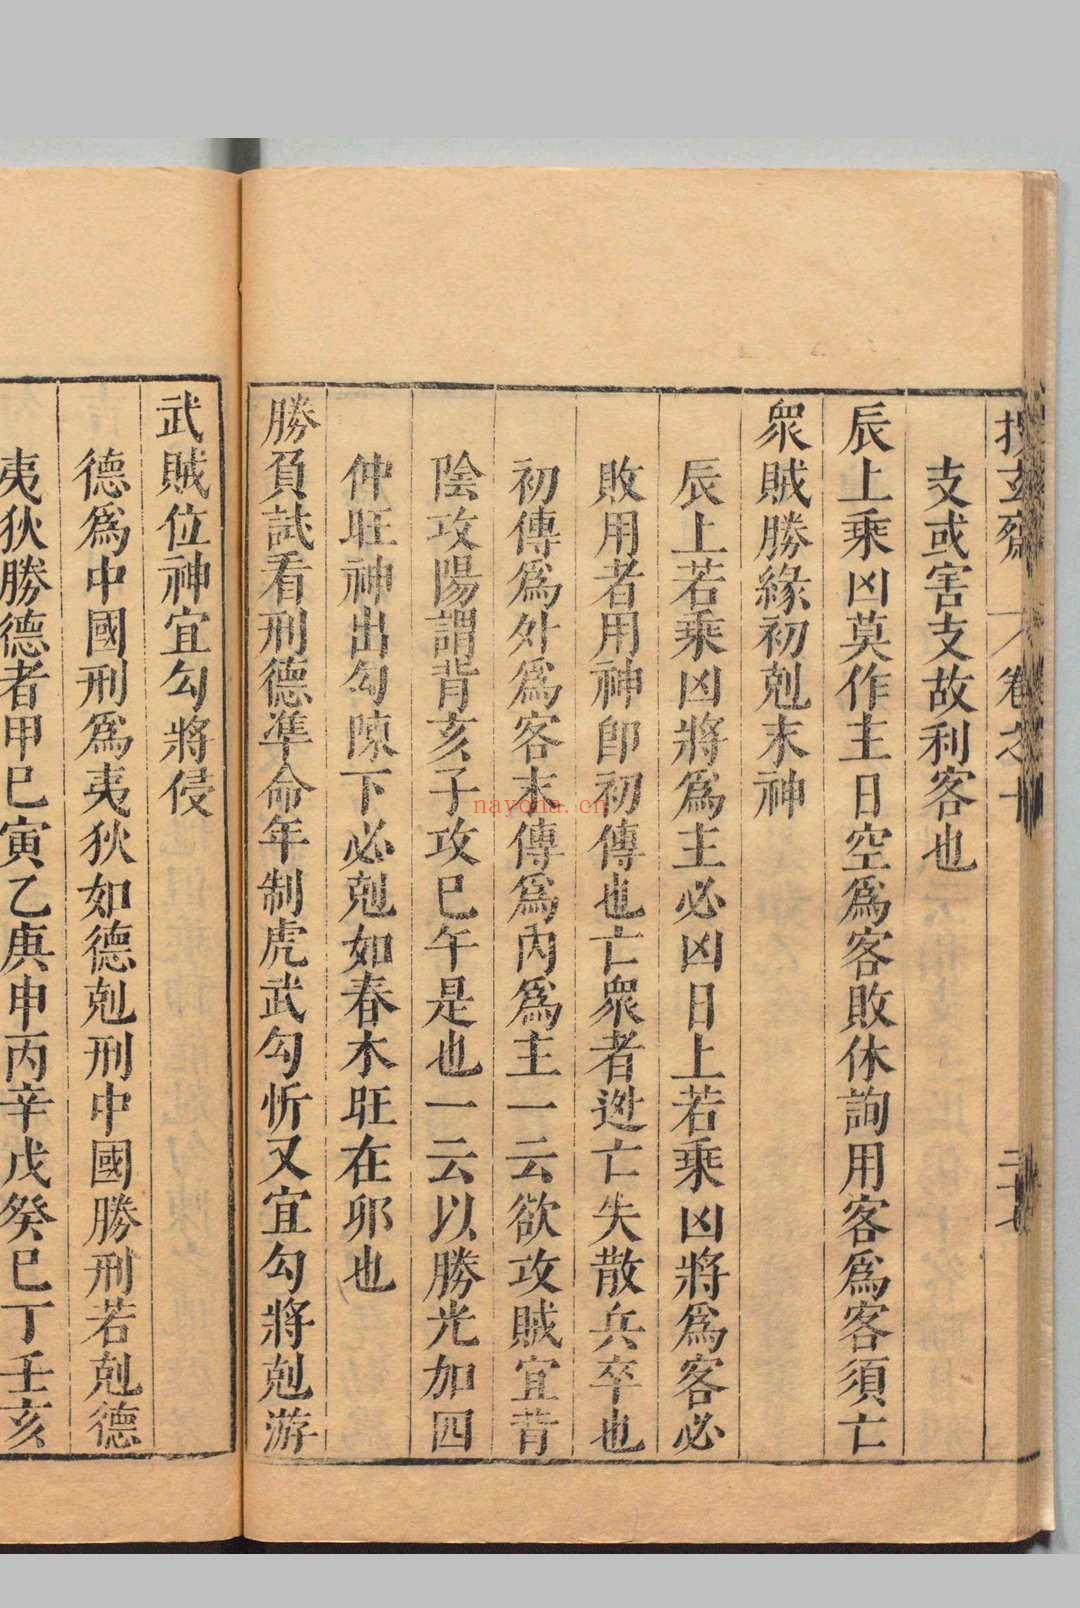 玄齋 卷之十
支或害支故利客也
辰上乘凶莫作主日空爲客敗休詢用客爲客須亡
衆賊勝緣初剋末神
辰上若乘凶將爲主必凶日上若乘凶將爲客必
敗用者用神卽初傳也亡衆者迯亡失散兵卒也
初傳爲外爲客末傳爲內爲主一云欲攻賊宜背
陰攻陽謂背亥子攻巳午是也一云以勝光加四
仲旺神出勾陳下必剋如春木旺在卯也
勝負試看刑德準命年制虎武勾忻又宜勾將剋游
武賊位神宜勾將侵
德爲中國刑爲夷狄如德剋刑中國勝刑若剋德
夷狄勝德者甲巳寅乙庚申丙辛戊癸巳丁壬亥
nayona.cn